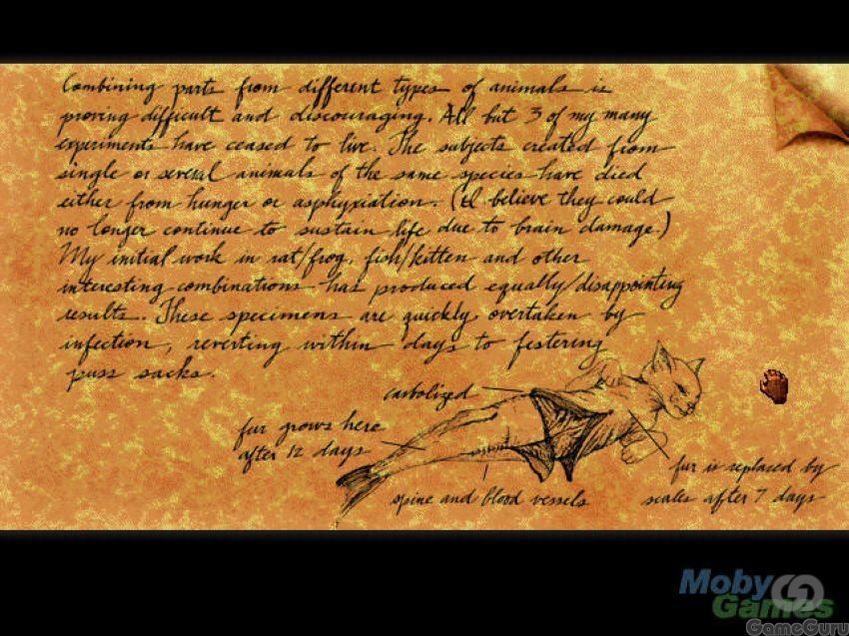 Combining parts from different types of animals is
proving difficult and discouraging. All but 3 of my many
experiments have ceased to live. The subjects created from
single or several animals of the same species have died
either from hunger or asphyxiation. (I believe they could
no longer continue to sustain life due to brain damage.)
My initial work in rat/frog, fish/kitten and other
interesting combinations has produced equally disappointing
results. These specimens are quickly overtaken by
infection, reverting within days to festering
puss sacks.
carbolized
fur grows here
after 12 days
spine and blood vessels
fur is replaced by
scales after 7 days
Moby
Games
GameGuru